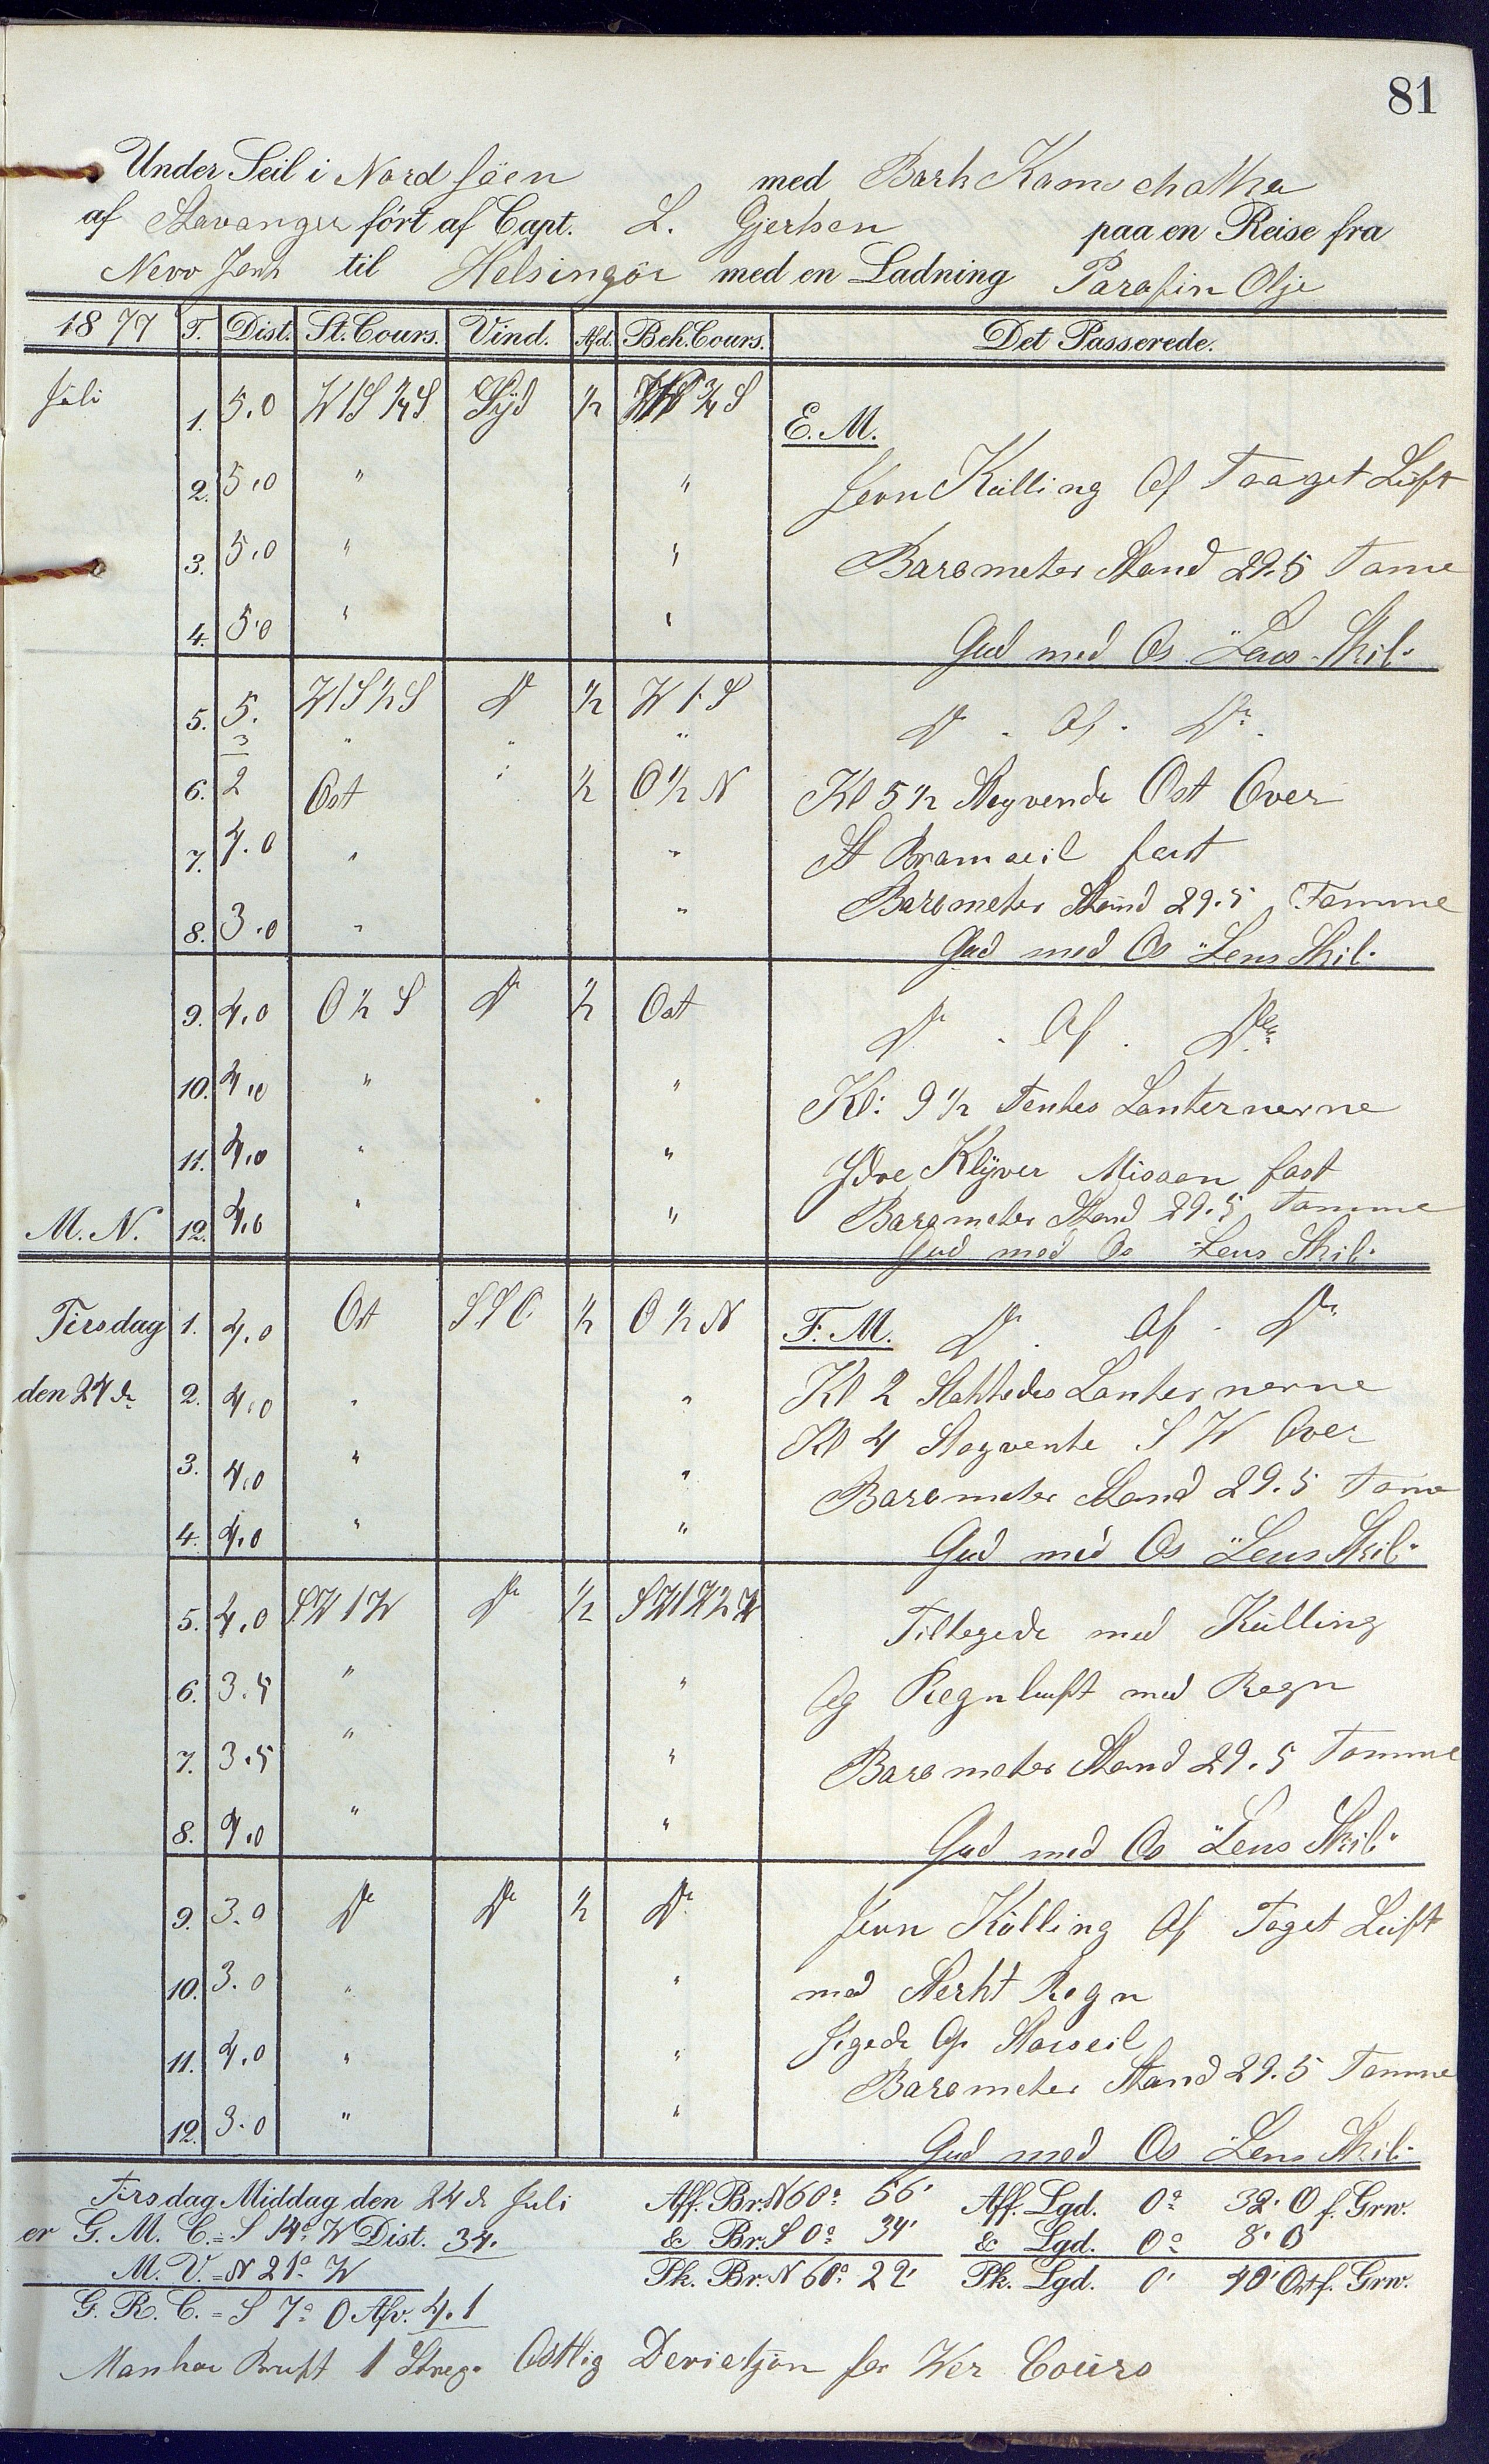 81
Under Seil i Nordsöen med Bark Kamschatka
af Stavanger fört af Capt. L. Gjertsen paa en Reise fra
New York til Helsingör med en Ladning Parafin Olje
1877 T. Dist. St. Cours. Vind. Afd. Beh. Cours. Det Passerede.
Juli 1. 5.0 W1S 3/4 S Syd 1/2 3/4 S E. M.
2. 5.0 " " Jevn Kulling Af Taaget Luft
3. 5.0 " " Barometer Stand 29.5 Tome
4. 5.0 " " Gud med Os Lens Skib.
5. 5. W1S 1/2 S Do 1/2 W1S Do . Af . Do
3 " " "
6. 2 Ost " 1/2 O 1/2 N Kl 5 1/2 Stagvende Ost Over
7. 4.0 " " St Bramseil fast
8. 3.0 " " Barometer Stand 29.5 Tomme
Gud med Os Lens Skib.
9. 4.0 O 1/2 S Do 1/2 Ost Do . Af . Do
10. 4.0 " " Kl: 9 1/2 Tentes Lanternerne
11. 4.0 " " Ydre Klyver Misaen fast
M. N. 12. 4.0 " " Barometer Stand 29.5 Tomme
Gud med Os Lens Skib.
Tirsdag 1. 4.0 Ost SSO 1/2 O 1/2 N F. M. Do . Af . Do
den 24de 2. 4.0 " " Kl 2 Slaktedes Lanternerne
3. 4.0 " " Kl 4 Stagvente SW Over
Barometer Stand 29.5 Tome
4. 4.0 " " Gud med Os Lens Skib.
5. 4.0 SW1W Do 1/2 SW1W 1/2 W Tiltagede med Kulling
6. 3.5 " " Og Regnluft med Regn
7. 3.5 " " Barometer Stand 29.5 Tomme
8. 4.0 " " Gud med Os Lens Skib.
9. 3.0 Do Do 1/2 Do Jevn Kulling Af Taget Luft
10. 3.0 " " med Sterkt Regn
11. 4.0 " " Op Storseil
Barometer Stand 29.5 Tomme
12. 3.0 " " Gud med Os Lens Skib.
Tirsdag Middag den 24de Juli Aff. Br. N 60° 56' Aff. Lgd. 0° 32' O f. Grw.
er G. M. C. = S 14° W Dist. 34. & Br. S 0° 34' & Lgd. 0° 8' O
M. V. = N 21° W Pk. Br. N 60° 22' Pk. Lgd. 0' 40' Ost f. Grw.
G. R. C. = S 7° O Afv. 4.1
Man har Bruft 1 Streg. Ostlig Deviatjon for Wer Cours